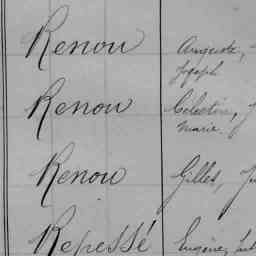 Renou Auguste,
Joseph
Renou Célestin,
Marie
Renou Gilles,
Repessé Eugène,